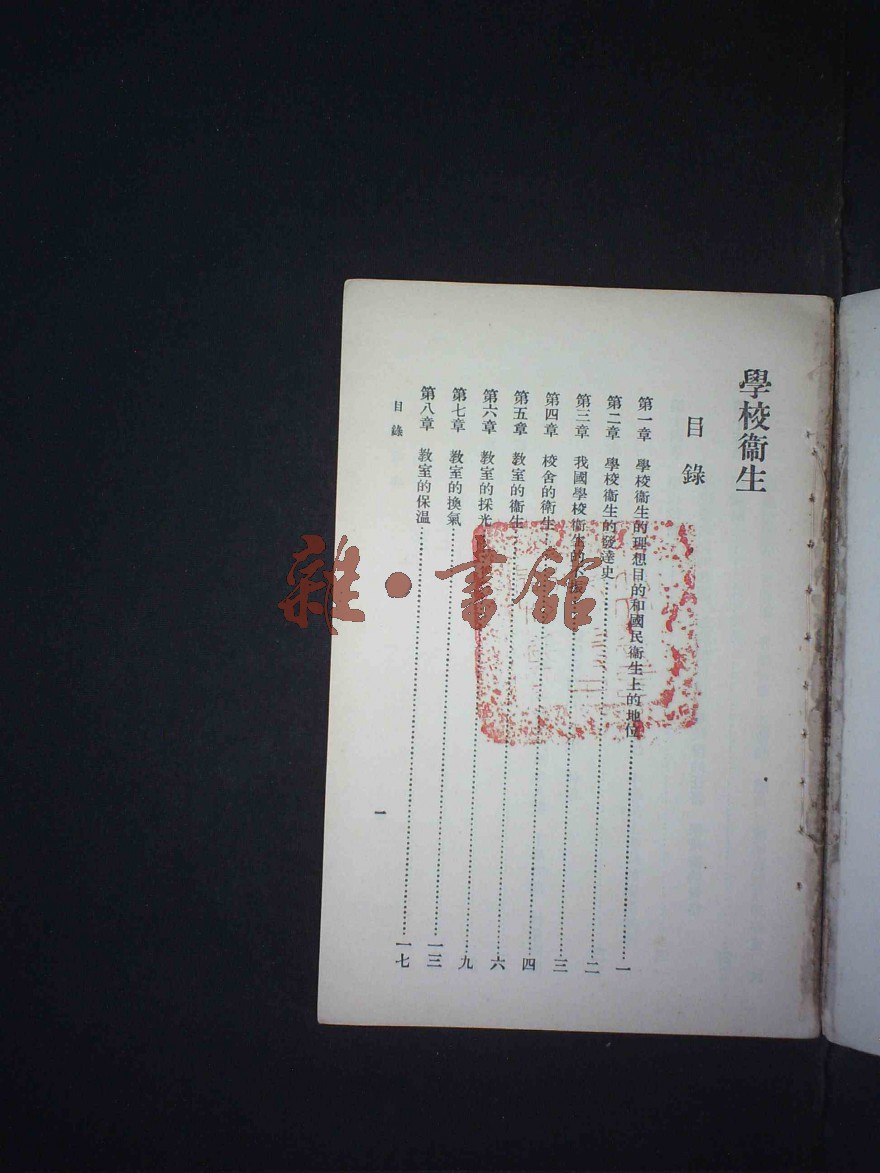 學校衞生
目錄
第一章 學校衞生的理想目的和國民衞生上的地位……一
第二章 學校衞生的發達史……二
第三章 我國學校衞生的……三
第四章 校舍的衞生……四
第五章 教室的衞生……六
第六章 教室的採光……九
第七章 教室的換氣……一三
第八章 教室的保溫……一七
目錄
一
雜·書館